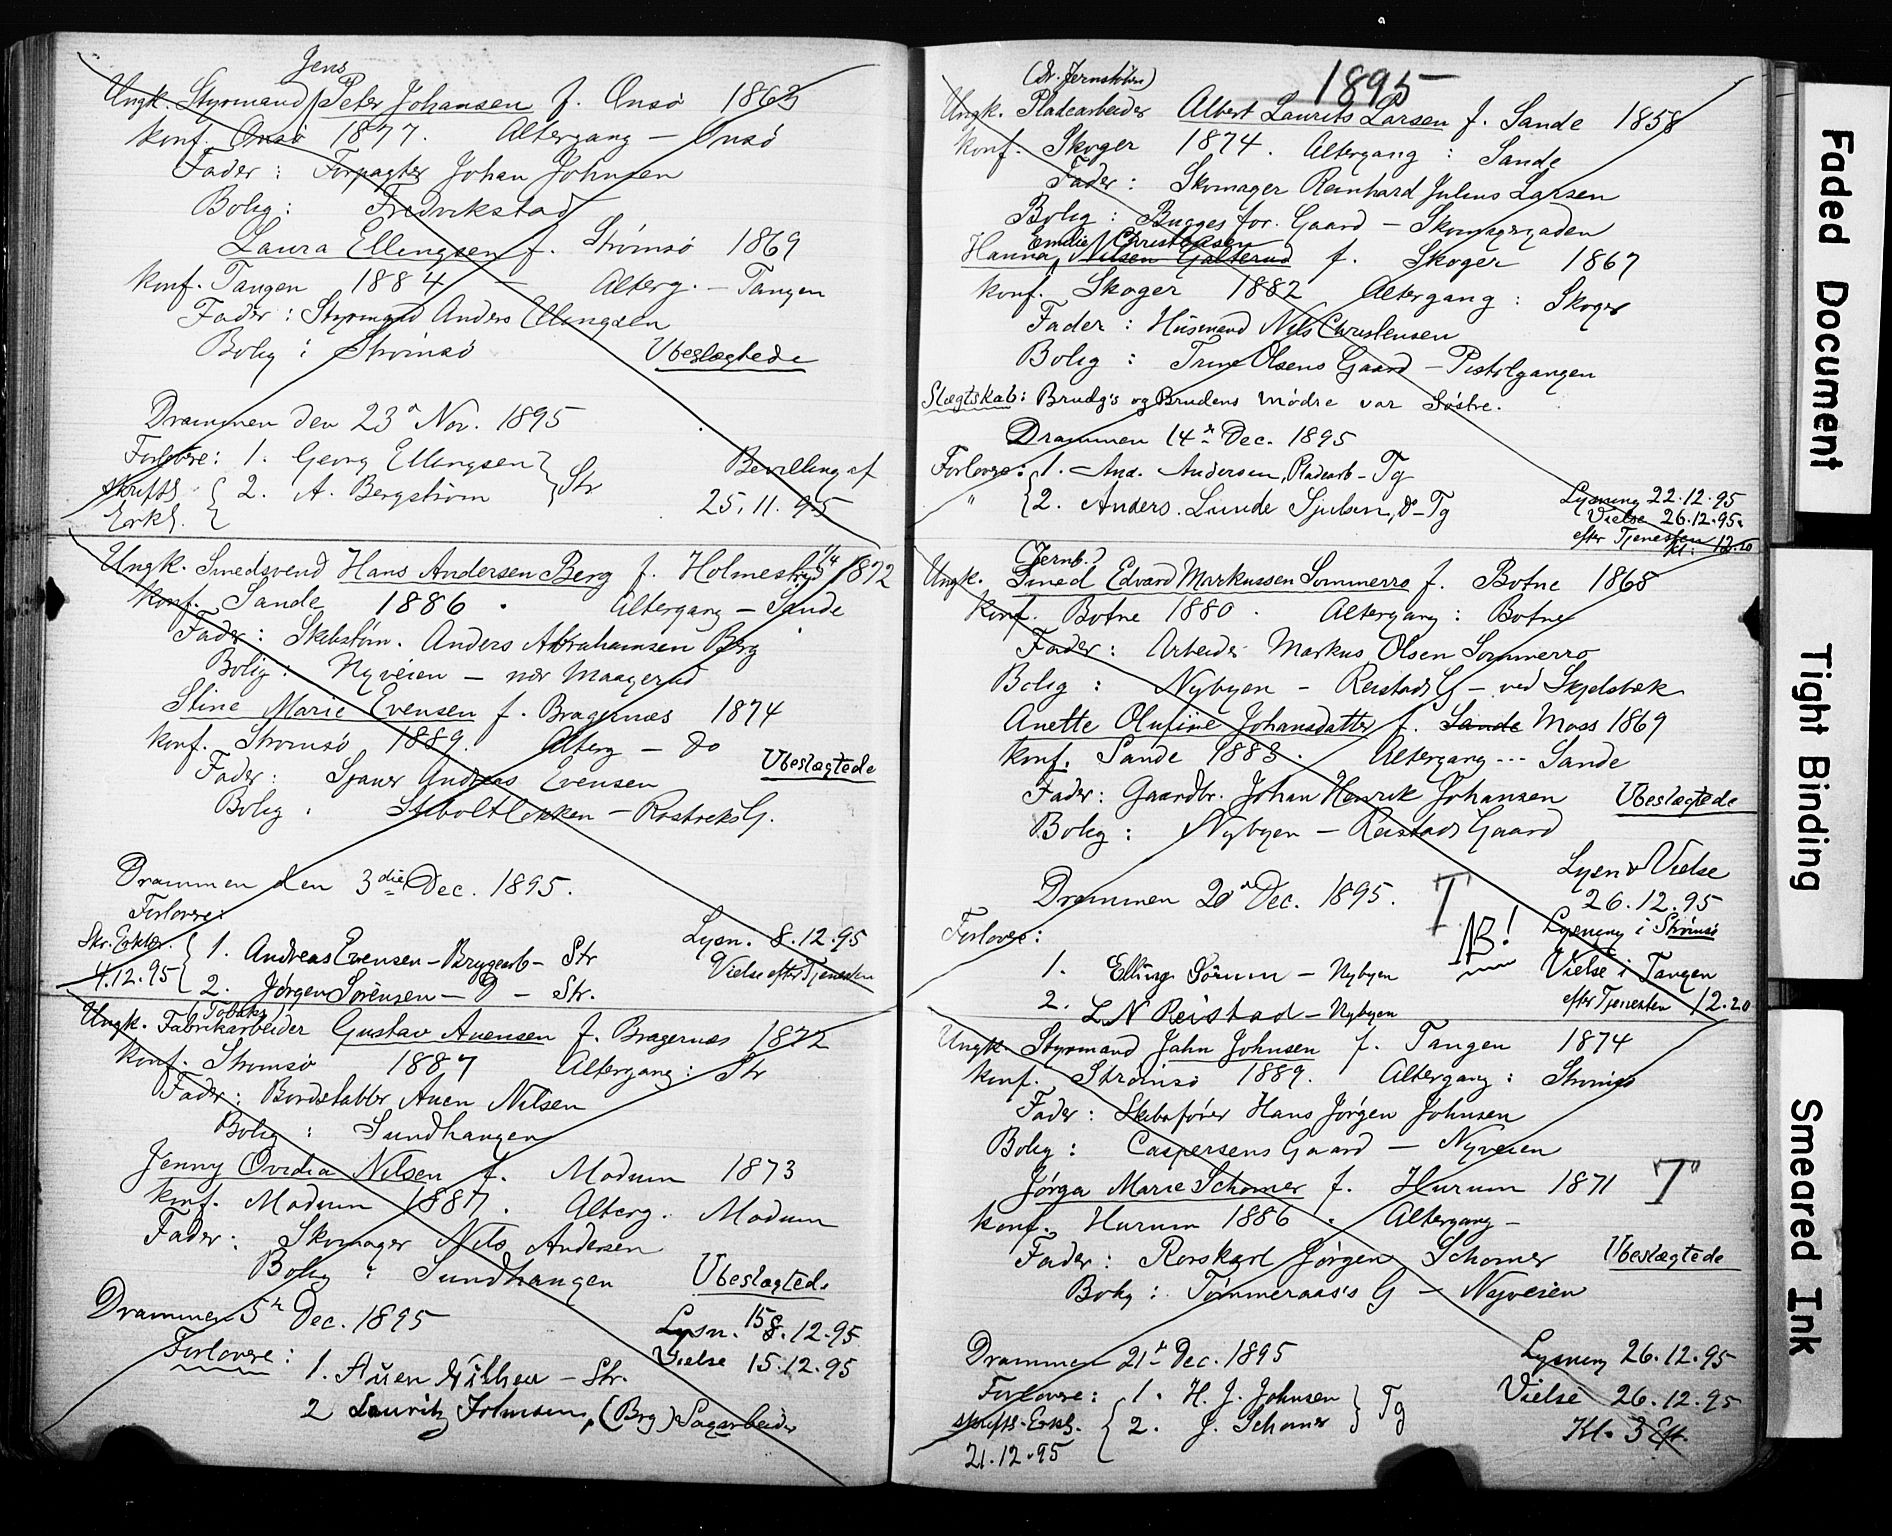 Jens
Ungk. Styrmand Peter Johansen f. Onsö 1863
Konf. Onsö 1877. Altergang — Onsö
Fader : Forpagter Johan Johnsen
Bolig : Fredrikstad
Laura Ellingsen f. Strömsö 1869
Konf. Tangen 1884 — Alterg. — Tangen
Fader : Styrmand Anders Ellingsen
Bolig : Strömsö Ubeslægtede
Drammen den 23 Nov. 1895
Forlovere : 1. Georg Ellingsen } Str
2. A. Bergström
skriftl. Erkl.
Bevilling af
25.11.95
Ungk. Smedsvend Hans Andersen Berg f. Holmestrand 1/4 1872
Konf. Sande 1886 . Altergang — Sande
Fader : Skibstöm. Anders Abrahamsen Berg
Bolig : Nyveien — nær Maagerud
Stine Marie Evensen f. Bragernæs 1874
Konf. Strömsö 1889. Alterg — do
Ubeslægtede
Fader : Sjauer Andreas Evensen
Bolig : Stiboltløkken — Rostreks G.
Drammen den 3die Dec. 1895.
Forlovere :
Skr. Erklr. 4.12.95 { 1. Andreas Evensen — Bryggearb — Str
2. Jørgen Sørensen — D — Str.
Lysn. 8.12.95
Vielse efter Tjenesten
(Tobaks)
Ungk. Fabrikarbeider Gustav Auensen f. Bragernæs 1872
Konf. Strömsö 1887 Altergang : Str
Fader : Bordstabler Auen Nilsen
Bolig : Sundhaugen
Jenny Ovidia Nilsen f. Modum 1873
Konf. Modum 1887 . Alterg. Modum
Fader : Skomager Nils Andersen
Bolig : Sundhaugen Ubeslægtede
Drammen 5 Dec. 1895
Lysn. 15 8.12.95
Vielse 15.12.95
Forlovere :
1. Auen Nilsen — Str.
2 Lauritz Johnsen, (Brg) Sagarbeider
1895
(Dr. Jernstøberi)
Ungk. Pladearbeider Albert Laurits Larsen f. Sande 1858
Konf. Skoger 1874 . Altergang : Sande
Fader : Skomager Reinhard Julius Larsen
Bolig : Bugges for. Gaard — Skomagergaden
Emilie Christensen
Hanna Nilsen Galterud f. Skoger 1867
Konf. Skoger 1882 Altergang : Skoger
Fader : Husmand Nils Christensen
Bolig : Trine Olsens Gaard — Pistolgangen
Slægtskab : Brudg's og Brudens Mødre var Söstre.
Drammen 14 Dec. 1895
Forlovere : 1. And. Andersen, Pladearb — Tg
" 2. Anders. Lunde Sjulsen, d — Tg
Lysning 22.12.95
Vielse 26.12.95.
efter Tjenesten
Kl : 12.20
(Jernb.)
Ungk. Smed Edvard Markussen Sommerro f. Botne 1868
Konf. Botne 1880 . Altergang : Botne
Fader : Arbeider Markus Olsen Sommerro
Bolig : Nybyen — Reistads G — ved Skjelsbæk
Anette Olufine Johansdatter f. Sande Moss 1869
Konf. Sande 1883. Altergang --- Sande
Fader : Gaardbr. Johan Henrik Johansen Ubeslægtede
Bolig : Nybyen — Reistads Gaard
Lysn & Vielse
26.12.95
Drammen 20 Dec. 1895. T
NB!
Lysning i Strömsö
Vielse i Tangen
efter Tjenesten 12.20
Forlovere :
1. Elling Sörum — Nybyen
2. L N Reistad — Nybyen
Ungk. Styrmand Jahn Johnsen f. Tangen 1874
Konf. Strömsö 1889. Altergang : Strömsö
Fader : Skibsfører Hans Jørgen Johnsen
Bolig : Caspersens Gaard — Nyveien
Jørga Marie Schomer f. Hurum 1871 "T"
Konf. Hurum 1886 . Altergang —
Fader : Rorskarl Jørgen Schomer Ubeslægtede
Bolig : Tømmeraas's G — Nyveien
Drammen 21 Dec. 1895
Forlovere : 1. H. J. Johnsen } Tg
skriftl. Erkl. { 2. J. Schomer
21.12.95
Lysning 26.12.95
Vielse 26.12.95
Kl. 3 Eft.
Faded Document
Tight Binding
Smeared Ink